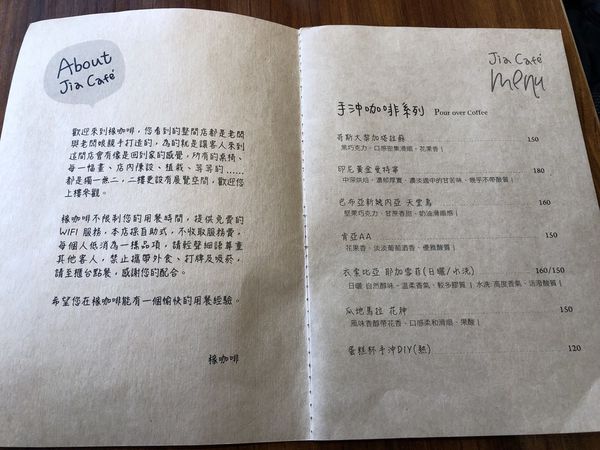 About
Jia Café
歡迎來到橡咖啡，您看到的整間店都是老闆
與老闆娘親手打造的，為的就是讓客人來到
這間店會有像是回到家的感覺，所有的桌椅、
每一幅畫、店內陳設、植栽、等等的......
都是獨一無二，二樓更設有展覽空間，歡迎您
上樓參觀。
橡咖啡不限制您的用餐時間，提供免費的
WIFI 服務，本店採自助式，不收取服務費，
每個人低消為一樣品項，請輕聲細語尊重
其他客人，禁止攜帶外食、打牌及吸菸，
請至櫃台點餐，感謝您的配合。
希望您在橡咖啡能有一個愉快的用餐經驗。
橡咖啡
Jia Café
menu
手沖咖啡系列 Pour over Coffee
哥斯大黎加塔拉蘇 150
黑巧克力、口感密集滑順、花果香 |
印尼黃金曼特寧 180
中深烘焙、濃郁厚實、濃淡適中的甘苦味、幾乎不帶酸質 |
巴布亞新幾內亞 天堂鳥 160
堅果巧克力、甘蔗香甜、奶油滑順感 |
肯亞AA 150
花果香、淡淡葡萄酒香、優雅酸質 |
衣索比亞 耶加雪菲(日曬/水洗) 160/150
日曬 自然醇味、溫柔香氣、較多膠質 | 水洗 高度香氣、活潑酸質 |
瓜地馬拉 花神 150
風味香醇帶花香、口感柔和滑順、果酸 |
蛋糕杯手沖DIY(熱) 120